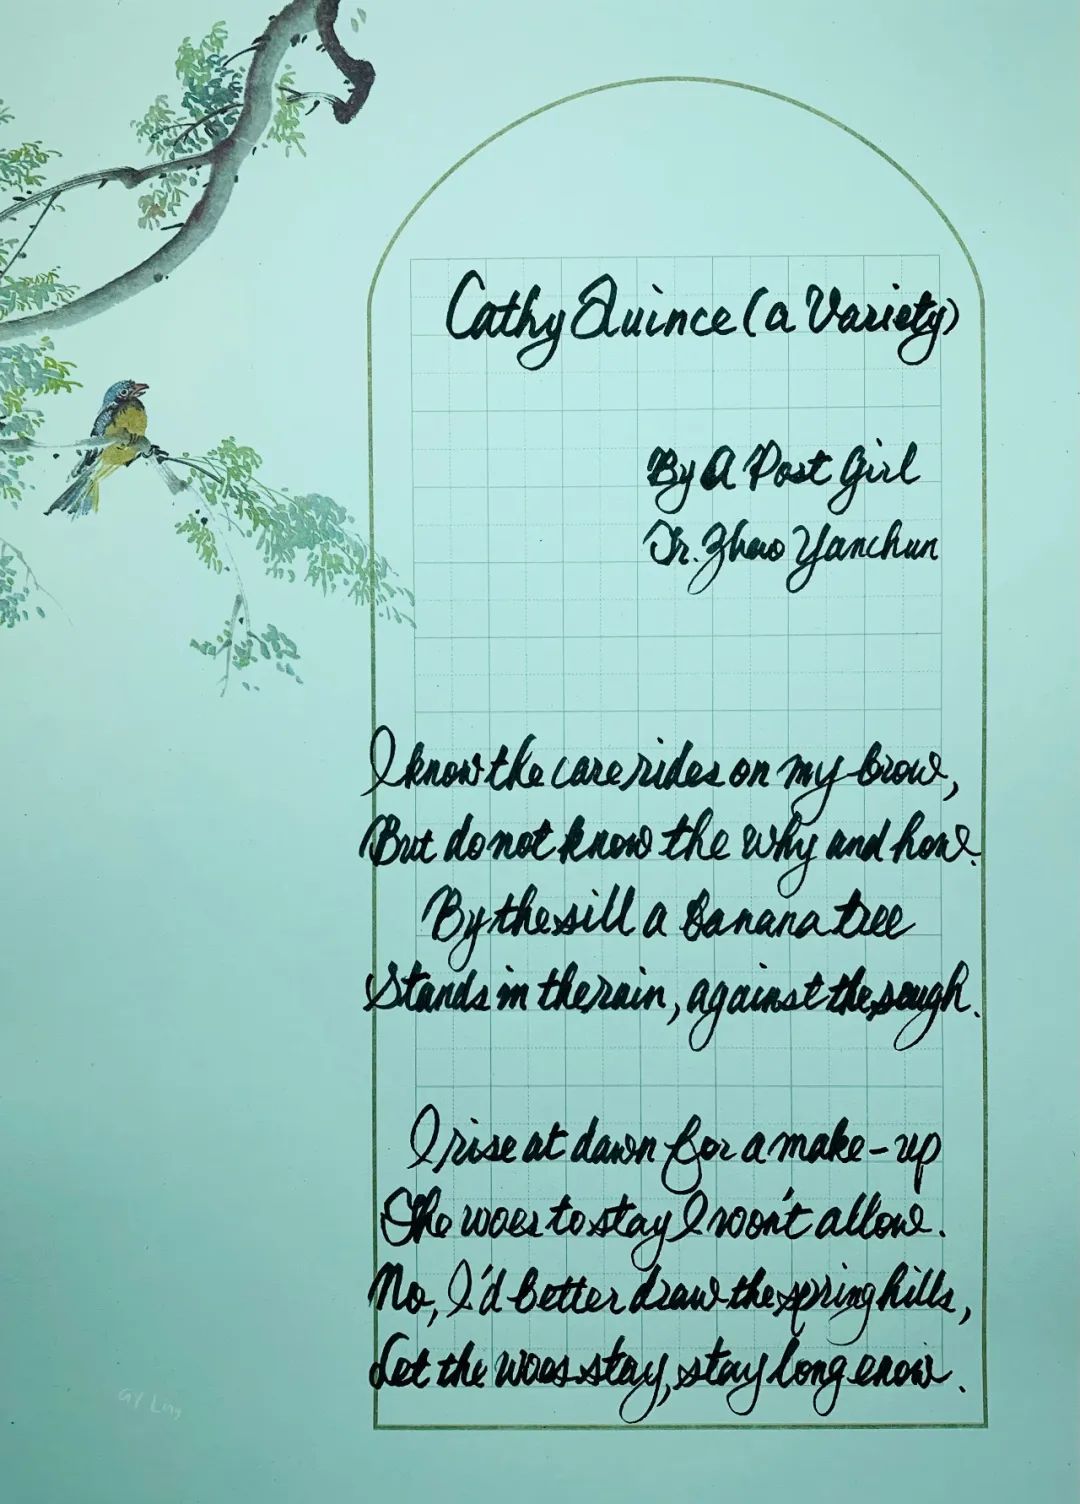 Cathy Quince (a Variety)
By A Post Girl
Tr. Zhao Yanchun
I know the care rides on my brow,
But do not know the why and how.
By the sill a banana tree
Stands in the rain, against the sough.
I rise at dawn for a make-up
The woes to stay I won't allow.
No, I'd better draw the spring hills,
Let the woes stay, stay long enow.